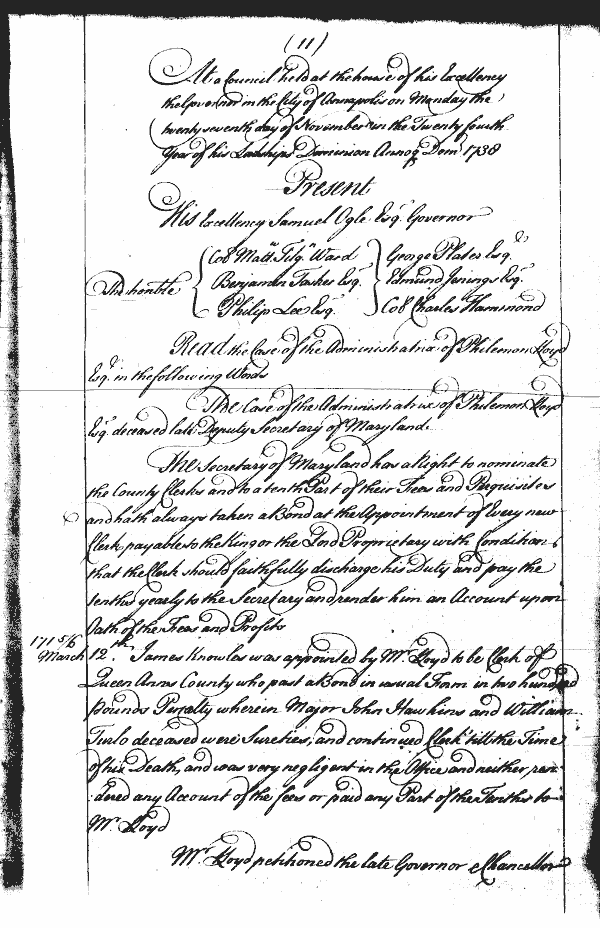 (11)
At a Council held at the house of his Excellency
the Governor in the City of Annapolis on Monday the
twenty seventh day of November in the Twenty fourth
Year of his Lordships Dominion Annoq Dom 1738
Present
His Excellency Samuel Ogle Esqr. Governor
The honble
Col Matt. Tilgn Ward
Benjamin Tasker Esqr.
Philip Lee Esqr.
George Plater Esqr.
Edmund Jenings Esqr.
Col Charles Hammond
Read the Case of the Administratrix of Philemon Lloyd
Esqr. in the following Words
The Case of the Administratrix of Philemon Lloyd
Esqr. deceased late Deputy Secretary of Maryland.
The Secretary of Maryland has a Right to nominate
the County Clerks and to a tenth Part of their Fees and Perquisites
and hath always taken a Bond at the Appointment of Every new
Clerk payable to the King or the Lord Proprietary with Condition
that the Clerk should faithfully discharge his Duty and pay the
tenths yearly to the Secretary and render him an Account upon
Oath of the Fees and Profits
1715/6
March 12th. James Knowles was appointed by Mr. Lloyd to be Clerk of
Queen Anns County who past a Bond in usual Form in two hundred
Pounds Penalty wherein Major John Hawkins and William
Turlo deceased were Sureties, and continued Clerk till the Time
of his Death, and was very negligent in the Office and neither ren-
dered any Account of the fees or paid any Part of the Tenths to
Mr. Lloyd
Mr. Lloyd petitioned the late Governor & Chancellor